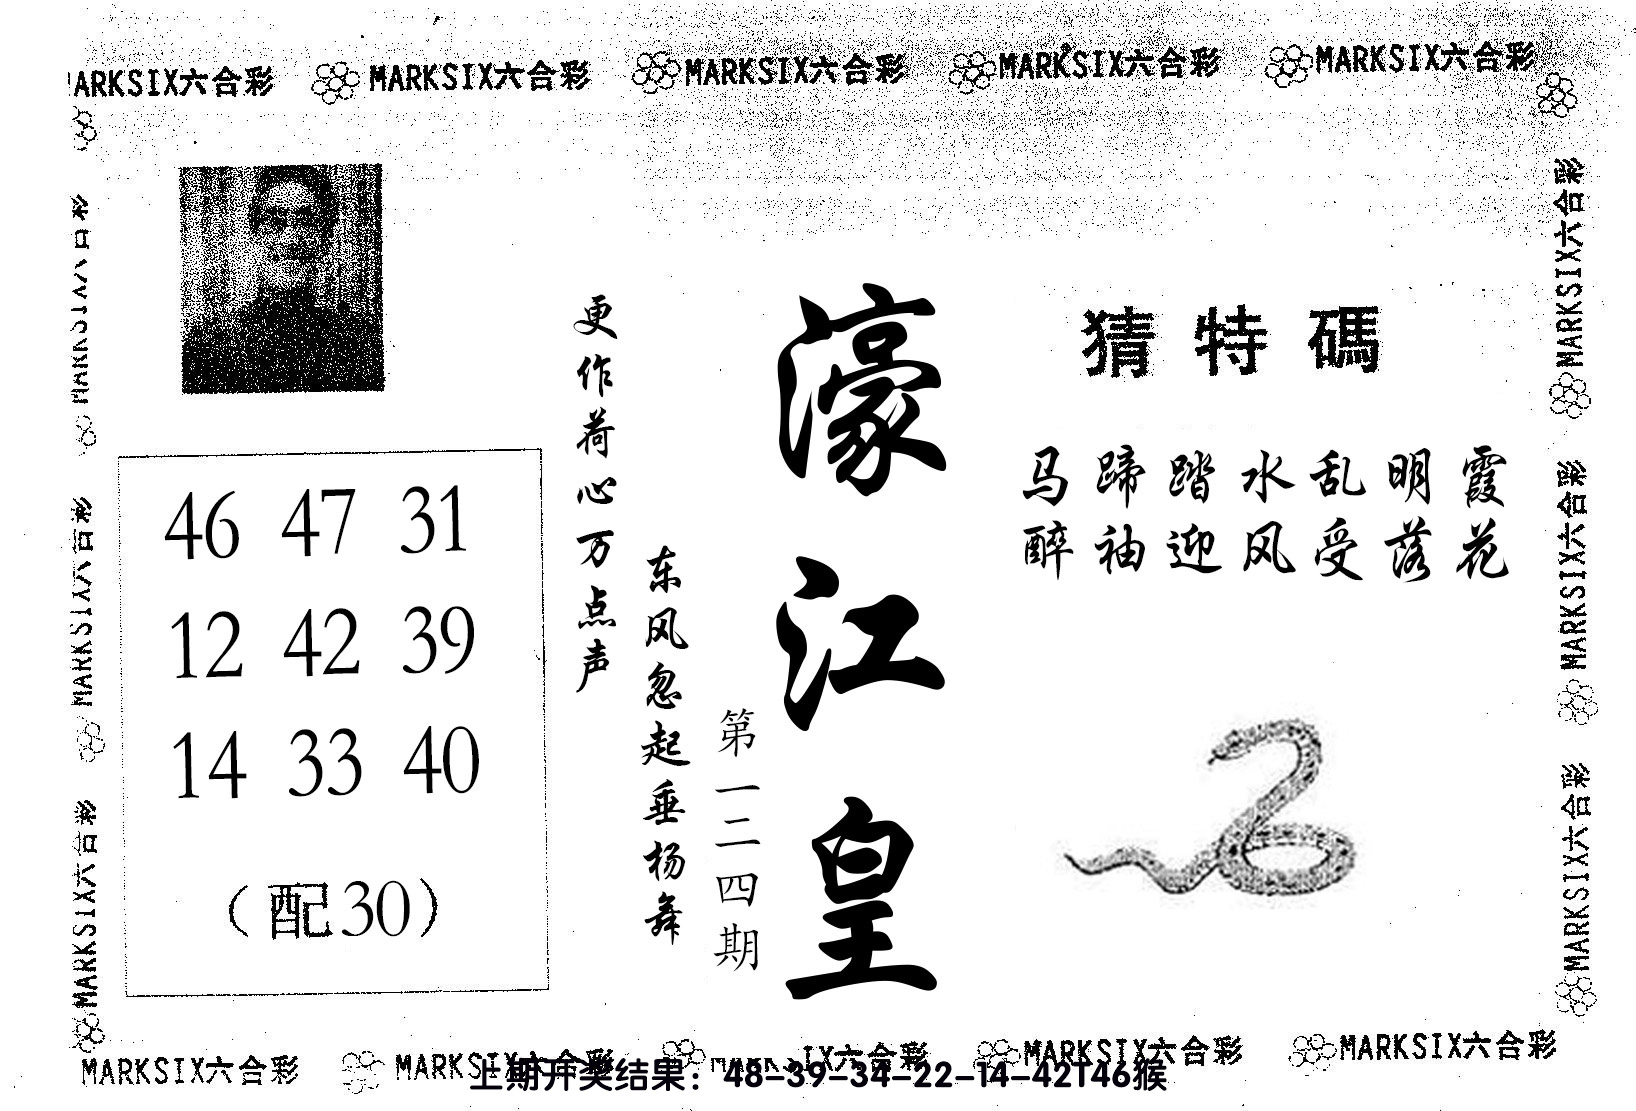 MARKSIX六合彩 MARKSIX六合彩 MARKSIX六合彩 MARKSIX六合彩
猜特碼
马蹄踏水乱明霞
醉袖迎风受落花
濠江皇
第一二四期
东风忽起垂杨舞
更作荷心万点声
46 47 31
12 42 39
14 33 40
（配30）
MARKSIX六合彩
MARKSIX六合彩
MARKSIX六合彩
MARKSIX六合彩
MARKSIX六合彩
MARKSIX六合彩 MARKSIX六合彩 MARKSIX六合彩 MARKSIX六合彩
上期开奖结果：48-39-34-22-14-42T46猴